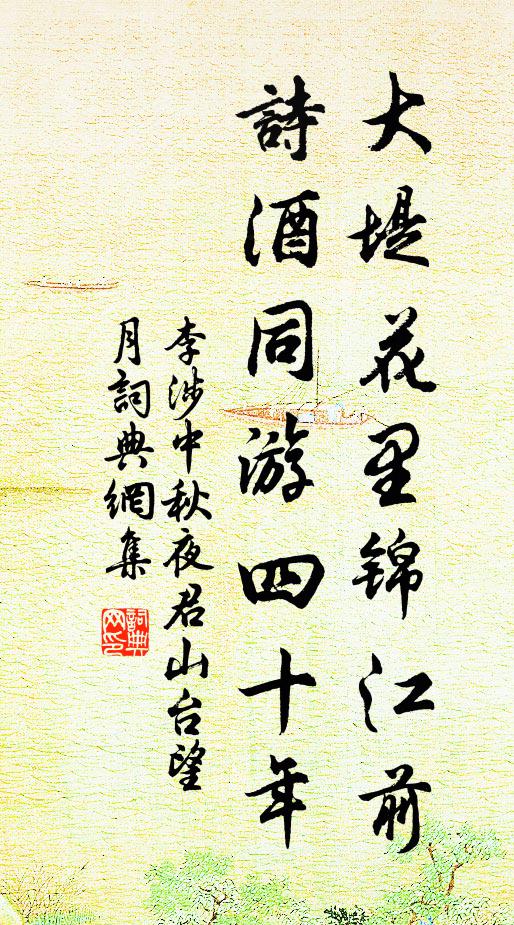 大堤花里锦江前
詩酒同游四十年
李涉中秋夜君山台望
月詞典網集
詞典网印